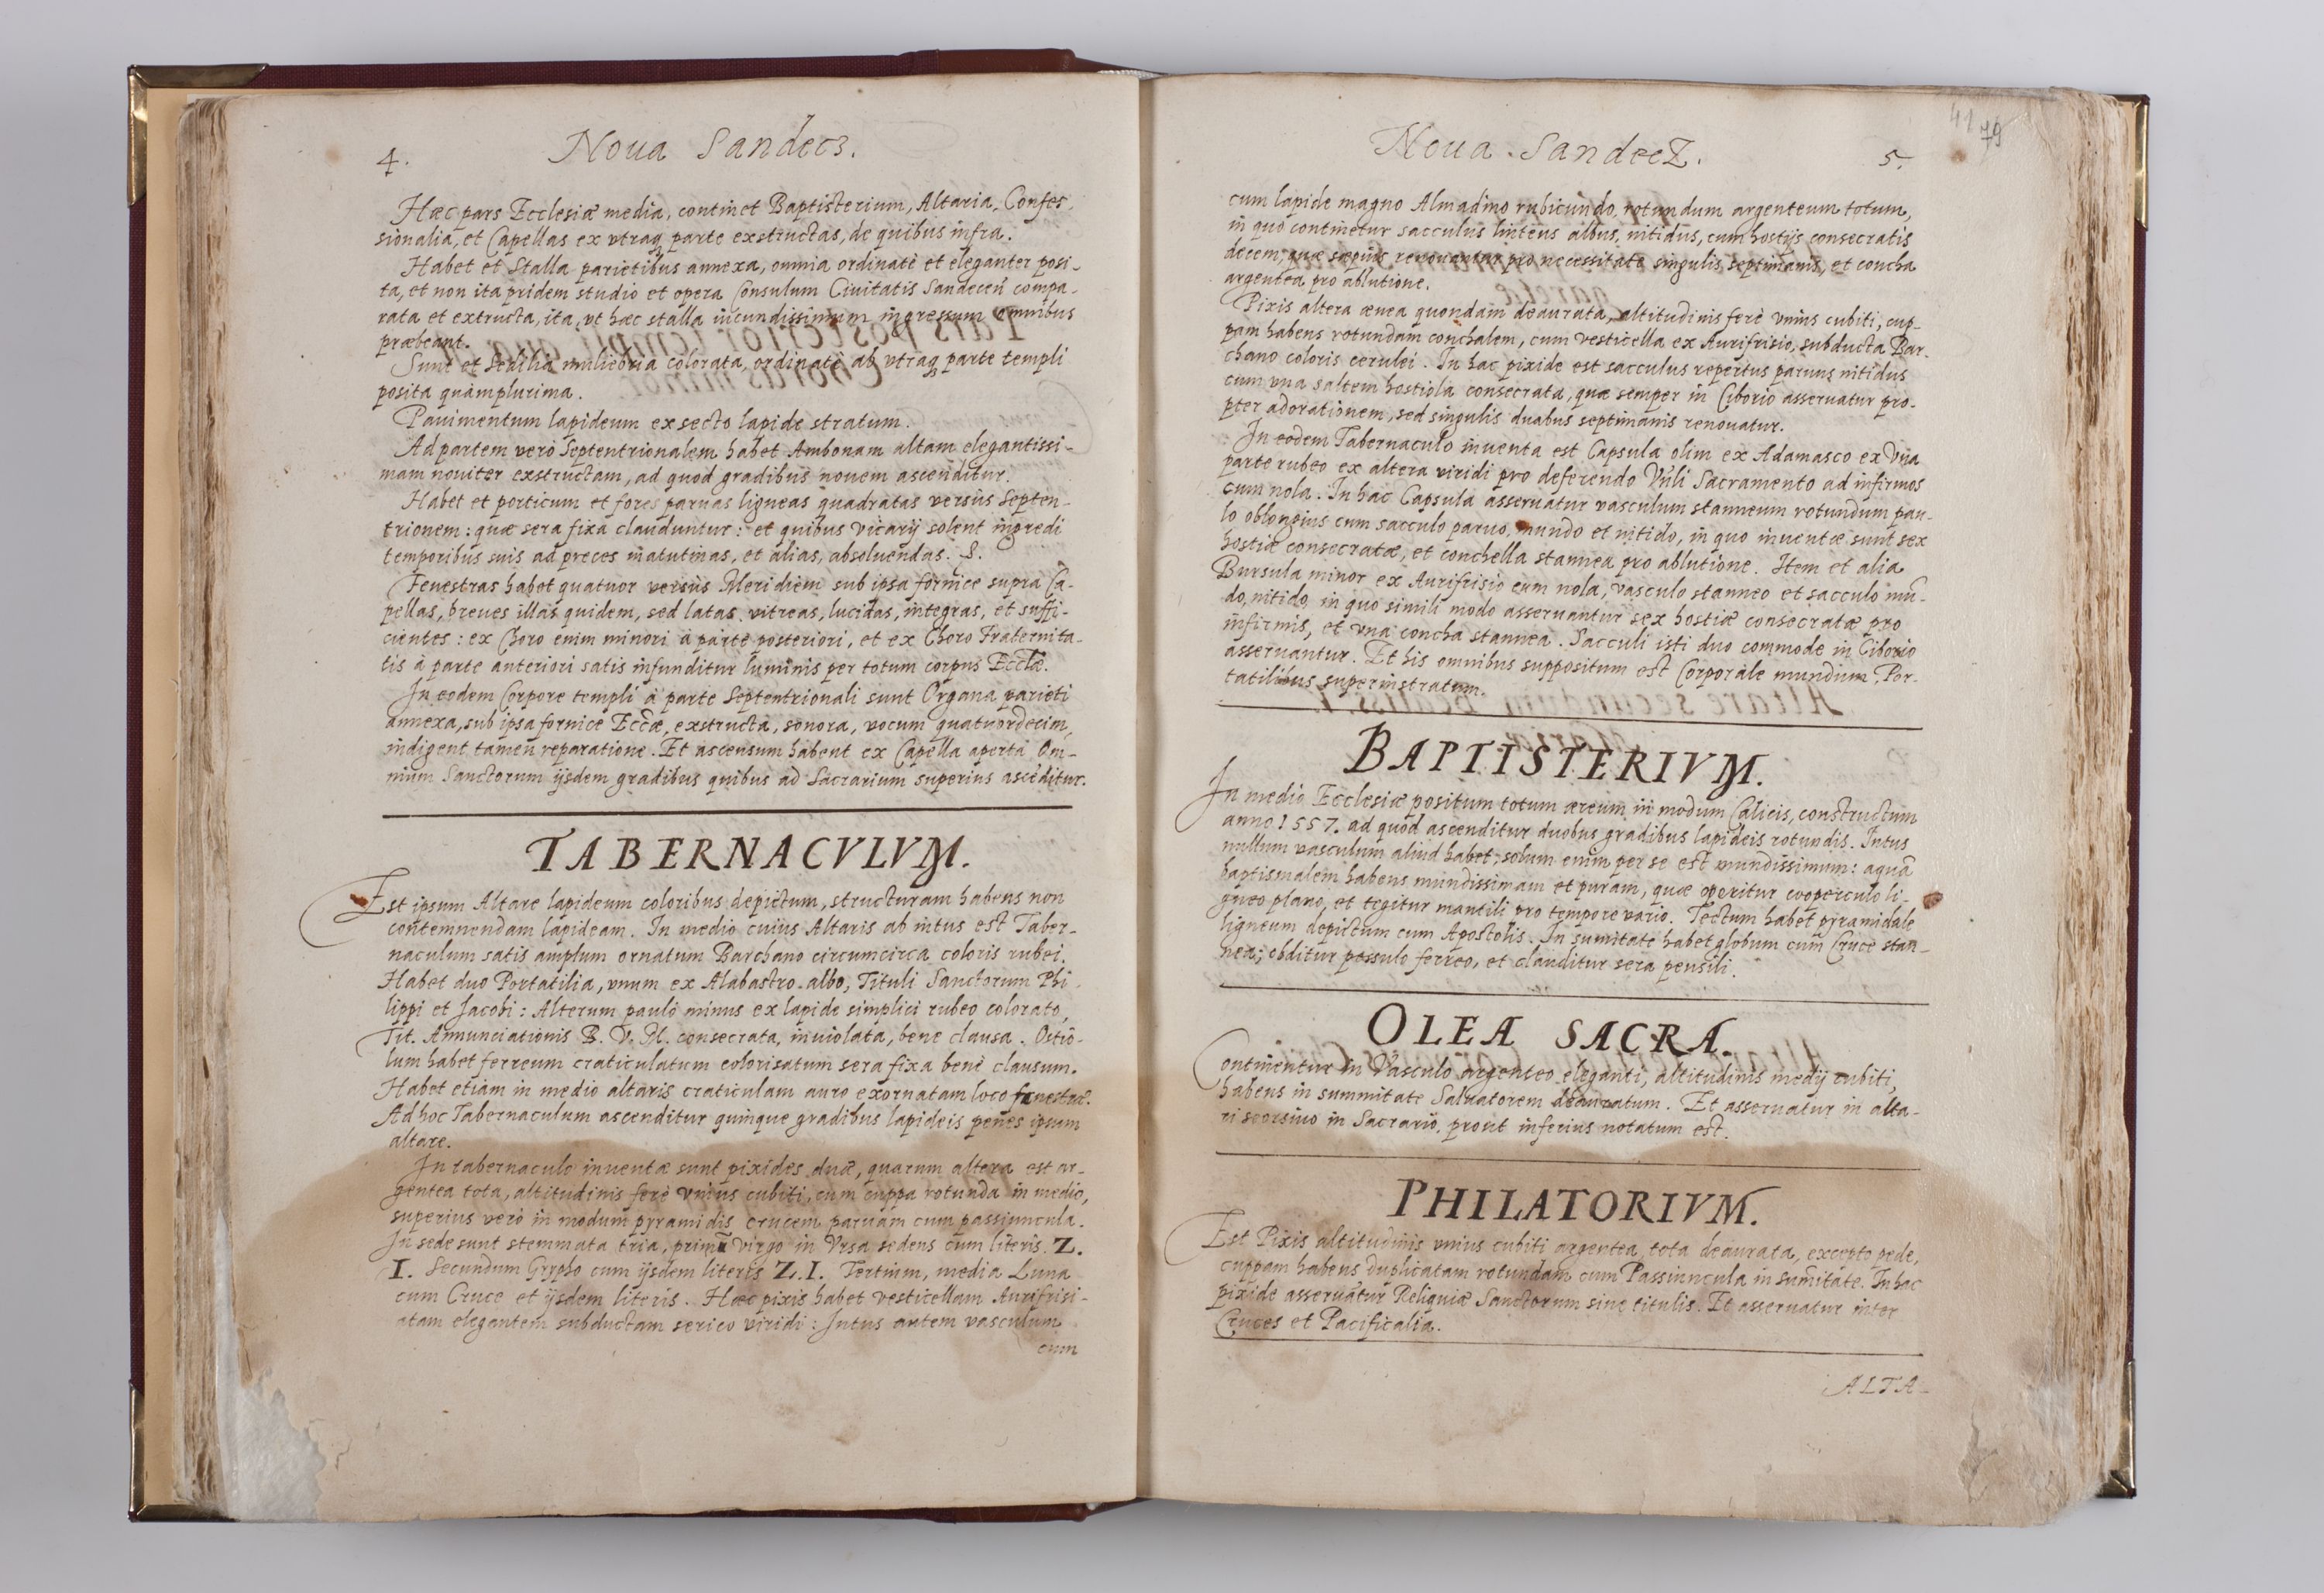 4.
Noua Sandecz.
Hæc pars Ecclesiæ media, continet Baptisterium, Altaria, Confes
sionalia, et Capellas ex vtraq parte exstructas, de quibus infra.
Habet et Stalla parietibus annexa, omnia ordinatè et eleganter posi-
ta, et non ita pridem studio et opera Consulum Ciuitatis Sandecen compa-
rata et extructa, ita vt hæc stalla iucundissimum ingressum omnibus
præbeant.
Sunt et Sedilia muliebria colorata, ordinatè ab vtraq parte templi
posita quàmplurima.
Pauimentum lapideum ex secto lapide stratum.
Ad partem verò Septentrionalem habet Ambonam altam elegantissi-
mam nouiter exstructam, ad quod gradibus nouem ascenditur.
Habet et porticum et fores paruas ligneas quadratas versùs Septen-
trionem: quæ sera fixa clauduntur: et quibus Vicarij solent ingredi
temporibus suis ad preces matutinas, et alias, absoluendas. §.
Fenestras habet quatuor versùs Meridiem sub ipsa fornice supra Ca-
pellas, breues illas quidem, sed latas vitreas, lucidas, integras, et suffi-
cientes: ex Choro enim minori à parte posteriori, et ex Choro Fraternita-
tis à parte anteriori satis infunditur luminis per totum corpus Eccłæ.
In eodem Corpore templi à parte Septentrionali sunt Organa parieti
annexa, sub ipsa fornice Eccæ, exstructa, sonora, vocum quatuordecim,
indigent tamen reparatione. Et ascensum habent ex Capella aperta Om-
nium Sanctorum ijsdem gradibus quibus ad Sacrarium superius ascēditur.
TABERNACVLVM.
Est ipsum Altare lapideum coloribus depictum, structuram habens non
contemnendam lapideam. In medio cuius Altaris ab intus est Taber-
naculum satis amplum ornatum Barchano circumcirca coloris rubei.
Habet duo Portatilia, vnum ex Alabastro albo, Tituli Sanctorum Phi
lippi et Jacobi: Alterum paulò minus ex lapide simplici rubeo colorato,
Tit. Annunciationis B. V. M. consecrata, inuiolata, bene clausa. Ostio-
lum habet ferreum craticulatum colorisatum sera fixa benè clausum.
Habet etiam in medio altaris craticulam auro exornatam loco fenestræ.
Ad hoc Tabernaculum ascenditur quinque gradibus lapideis penes ipsum
altare.
In tabernaculo inuentæ sunt pixides duæ, quarum altera est ar-
gentea tota, altitudinis ferè vnius cubiti, cum cuppa rotunda in medio,
superius verò in modum pyramidis crucem paruam cum passiuncula.
In sede sunt stemmata tria, primū Virgo in Vrsa sedens cum literis. Z.
I. Secundum Grypho cum ijsdem literis Z. I. Tertium, media Luna
cum Cruce et ijsdem literis. Hæc pixis habet vesticellam Aurifrisi-
atam elegantem subductam serico viridi: Intus autem vasculum
cum
41
79
Noua. SandecZ.
5.
cum lapide magno Almadino rubicundo, rotundum argenteum totum,
in quo continetur sacculus linteus albus, nitidus, cum hostijs consecratis
decem, quæ sæpiùs renouantur pro necessitate singulis septimanis, et concha
argentea pro ablutione.
Pixis altera ænea quondam deaurata, altitudinis ferè vnius cubiti, cup-
pam habens rotundam conchalem, cum vesticella ex Aurifrisio, subducta Bar-
chano coloris cerulei. In hac pixide est sacculus repertus paruus nitidus
cum vna saltem hostiola consecrata, quæ semper in Ciborio asseruatur pro-
pter adorationem, sed singulis duabus septimanis renouatur.
In eodem Tabernaculo inuenta est Capsula olim ex Adamasco ex vna
parte rubeo ex altera viridi pro deferendo Vnli Sacramento ad infirmos
cum nola. In hac Capsula asseruatur vasculum stanneum rotundum pau-
lo oblongius cum sacculo paruo, mundo et nitido, in quo inuentæ sunt sex
hostiæ consecratæ, et conchella stannea pro ablutione. Item et alia
Bursula minor ex Aurifrisio cum nola, vasculo stanneo et sacculo mū-
do, nitido, in quo simili modo asseruantur sex hostiæ consecratæ pro
infirmis, et vna concha stannea. Sacculi isti duo commode in Ciborio
asseruantur. Et his omnibus suppositum est Corporale mundum, Por-
tatilibus superinstratum.
BAPTISTERIVM.
In medio Ecclesiæ positum totum æreum in modum Calicis, constructum
anno 1557. ad quod ascenditur duobus gradibus lapideis rotundis. Intus
nullum vasculum aliud habet, solum enim per se est mundissimum: aquā
baptismalem habens mundissimam et puram, quæ operitur cooperculo li-
gneo plano, et tegitur mantili pro tempore vario. Tectum habet pyramidale
ligneum depictum cum Apostolis. In sumitate habet globum cum Cruce stan-
nea; obditur pessulo ferreo, et clauditur sera pensili.
OLEA SACRA.
Continentur in Vasculo argenteo eleganti, altitudinis medij cubiti,
habens in summitate Saluatorem deauratum. Et asseruatur in alta-
ri seorsiuo in Sacrario, prout inferius notatum est.
PHILATORIVM.
Est Pixis altitudinis vnius cubiti argentea, tota deaurata, excepto pede,
cuppam habens duplicatam rotundam cum Passiuncula in sumitate. In hac
pixide asseruātur Reliquiæ Sanctorum sine titulis. Et asseruatur inter
Cruces et Pacificalia.
ALTA-